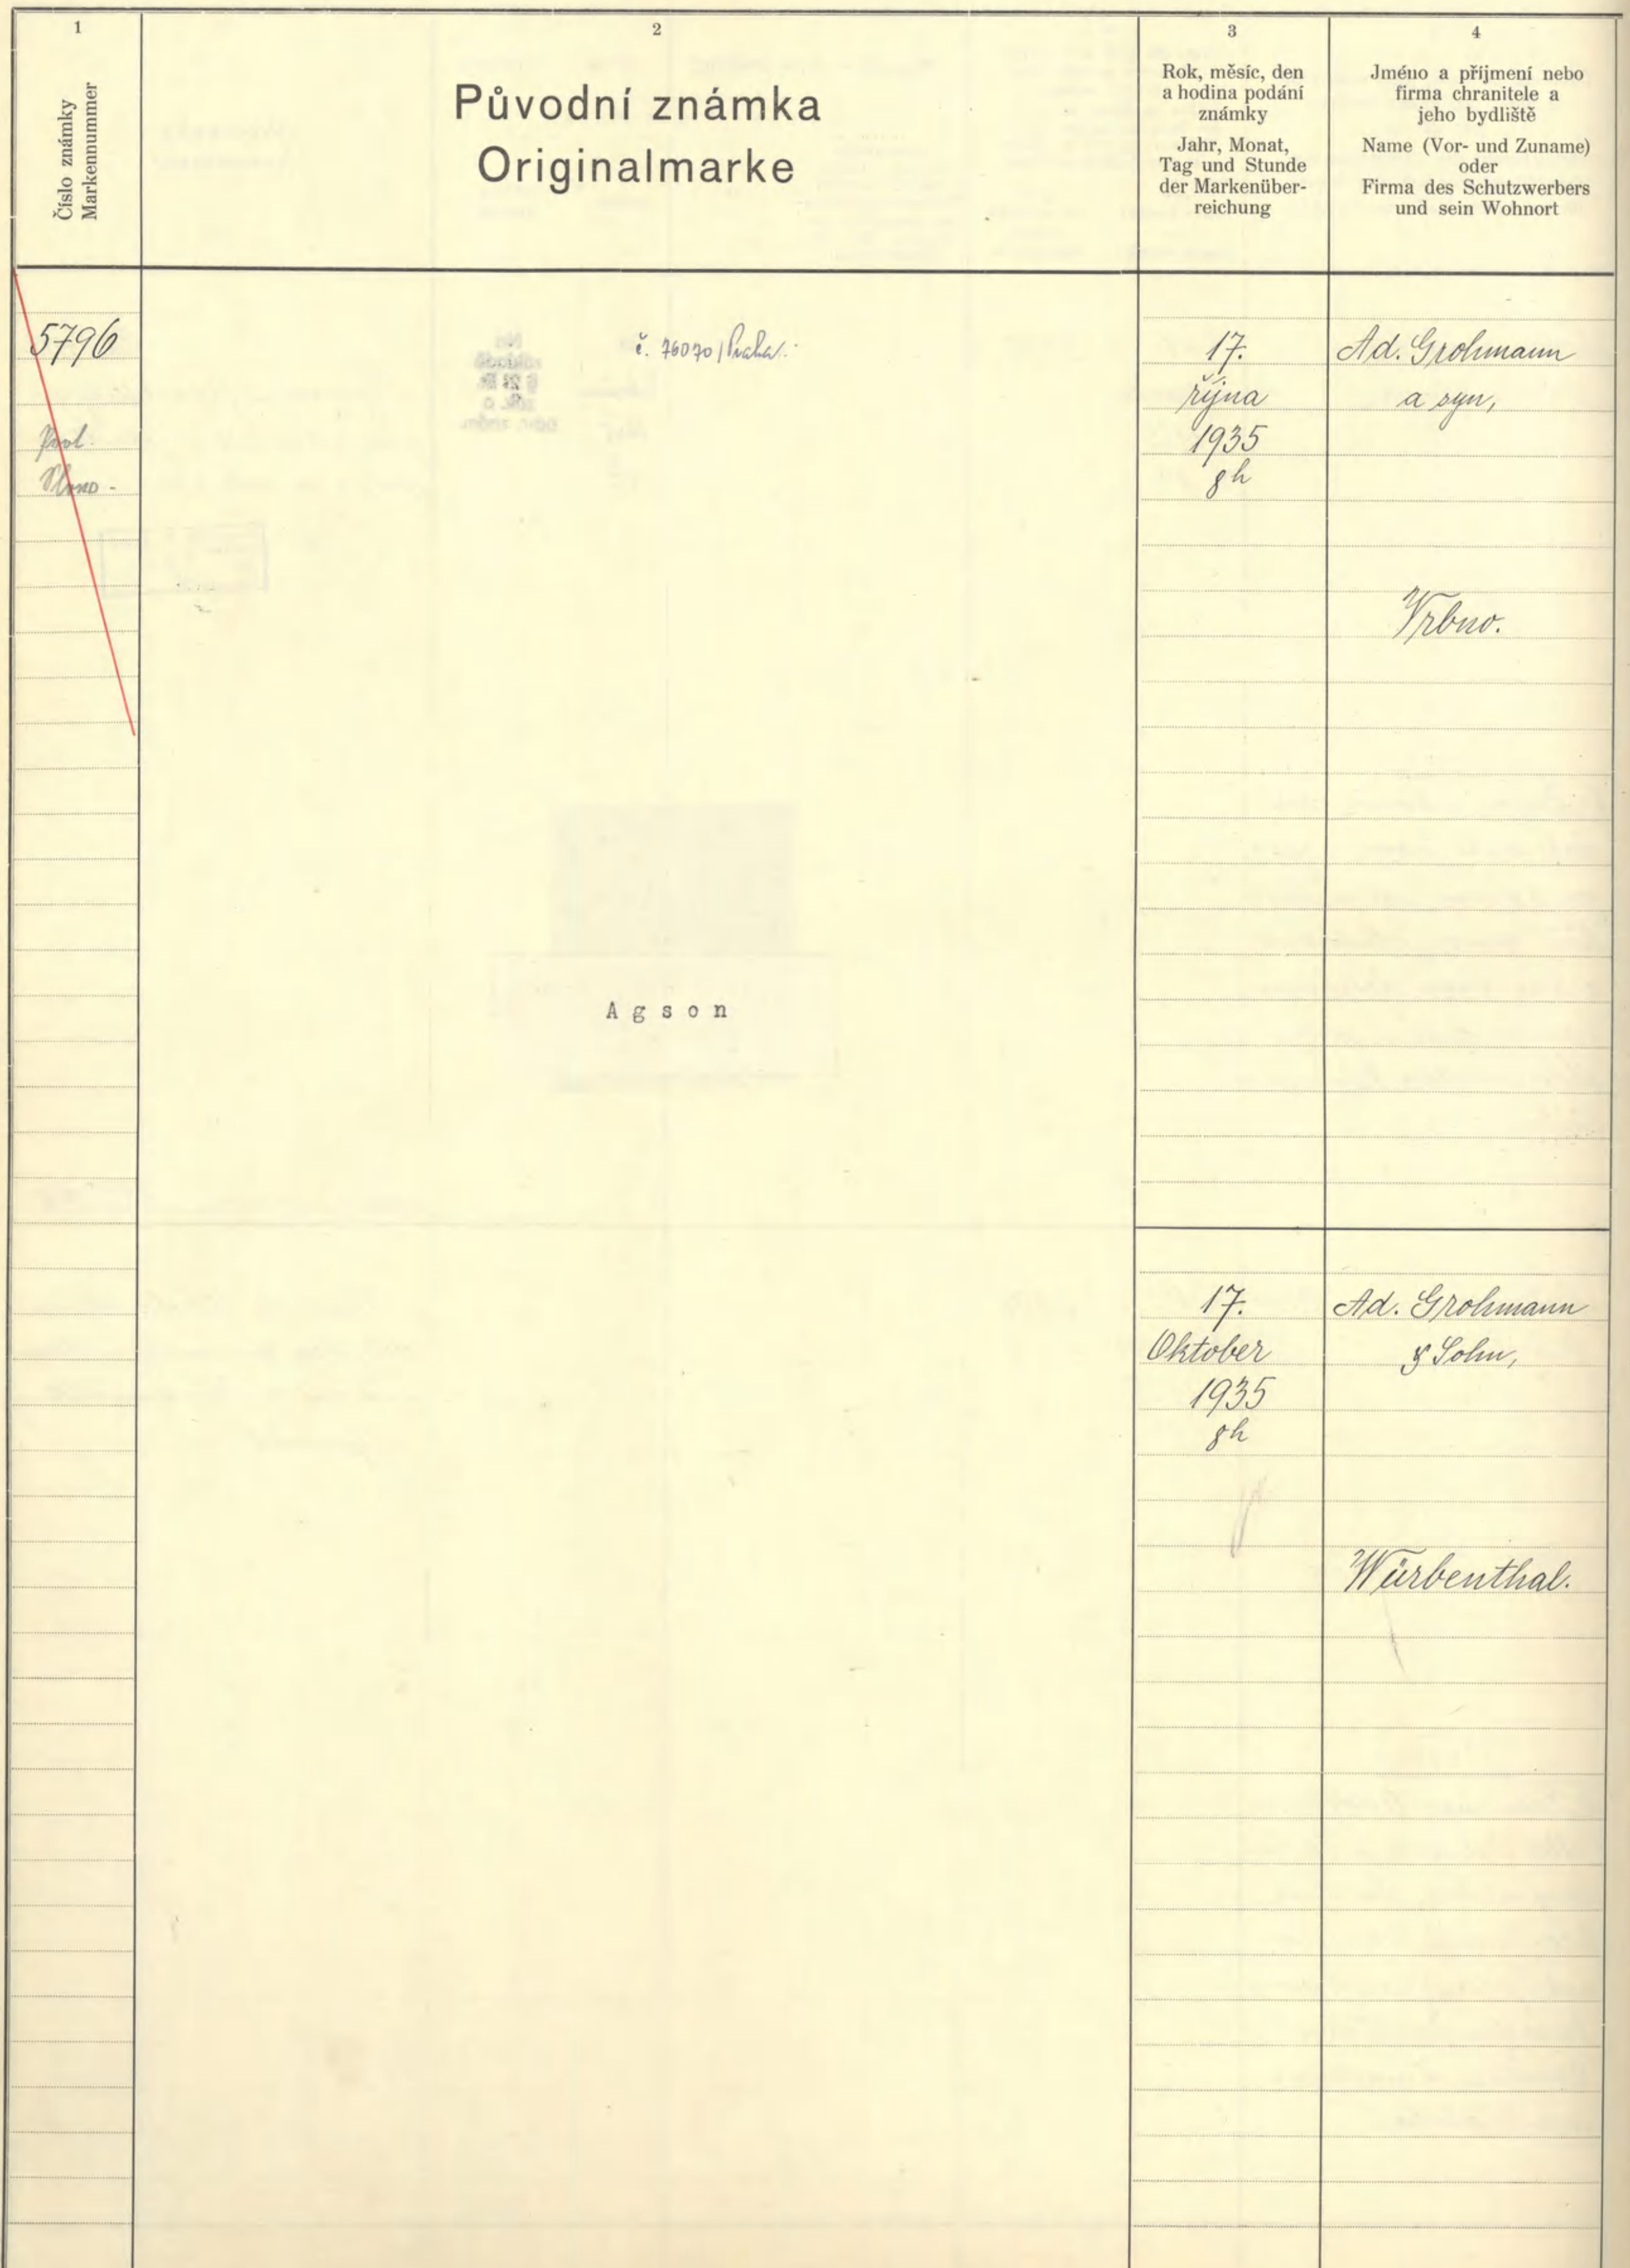 1
Číslo známky
Markennummer
2
Původní známka
Originalmarke
3
Rok, měsíc, den
a hodina podání
známky
Jahr, Monat,
Tag und Stunde
der Markenüber-
reichung
4
Jméno a příjmení nebo
firma chranitele a
jeho bydliště
Name (Vor- und Zuname)
oder
Firma des Schutzwerbers
und sein Wohnort
5796
č. 76070/Praha.
17.
října
1935
8h
Ad. Grohmann
a syn,
Vrbno.
Agson
17.
Oktober
1935
8h
Ad. Grohmann
& Sohn,
Würbenthal.